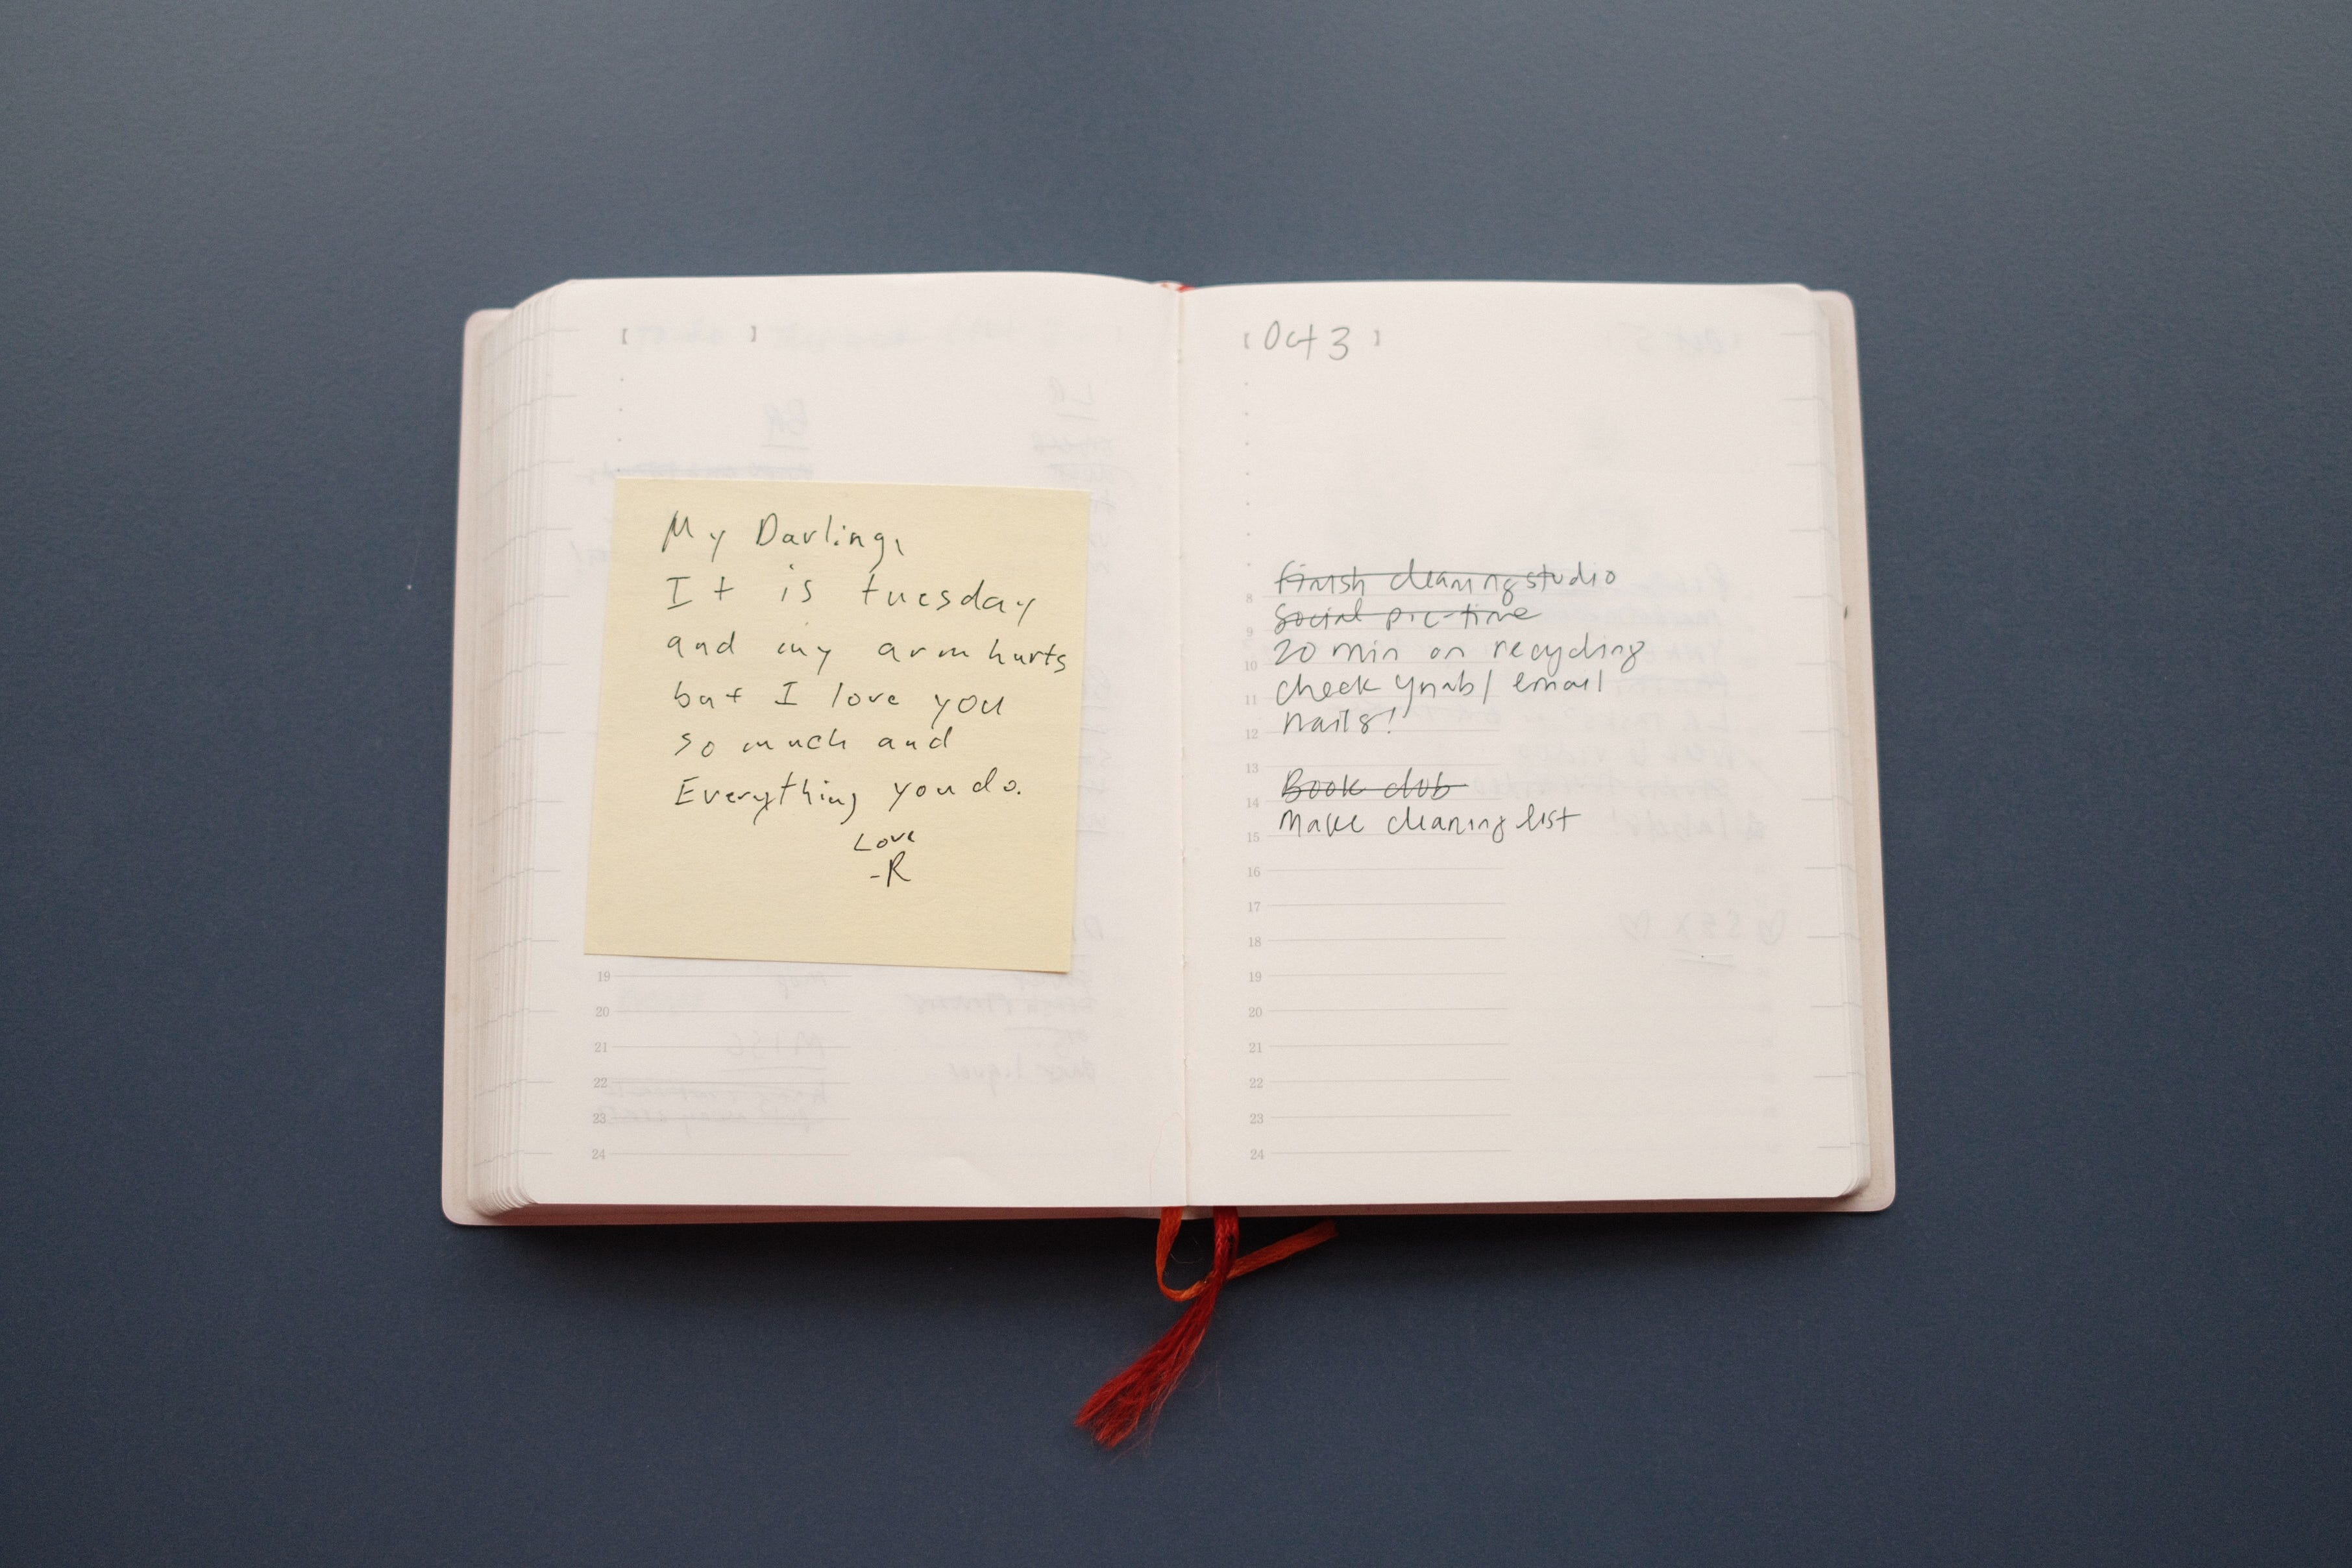 [ ]
My Darling,
It is tuesday
and my arm hurts
but I love you
so much and
Everything you do.
Love
-R
19
20
21
22
23
24
[ Oct 3 ]
Finish cleaning studio
8
Social pic-time
9
20 min on recycling
10
check ynab/ email
11
nails!
12
13
Book club
14
Make cleaning list
15
16
17
18
19
20
21
22
23
24